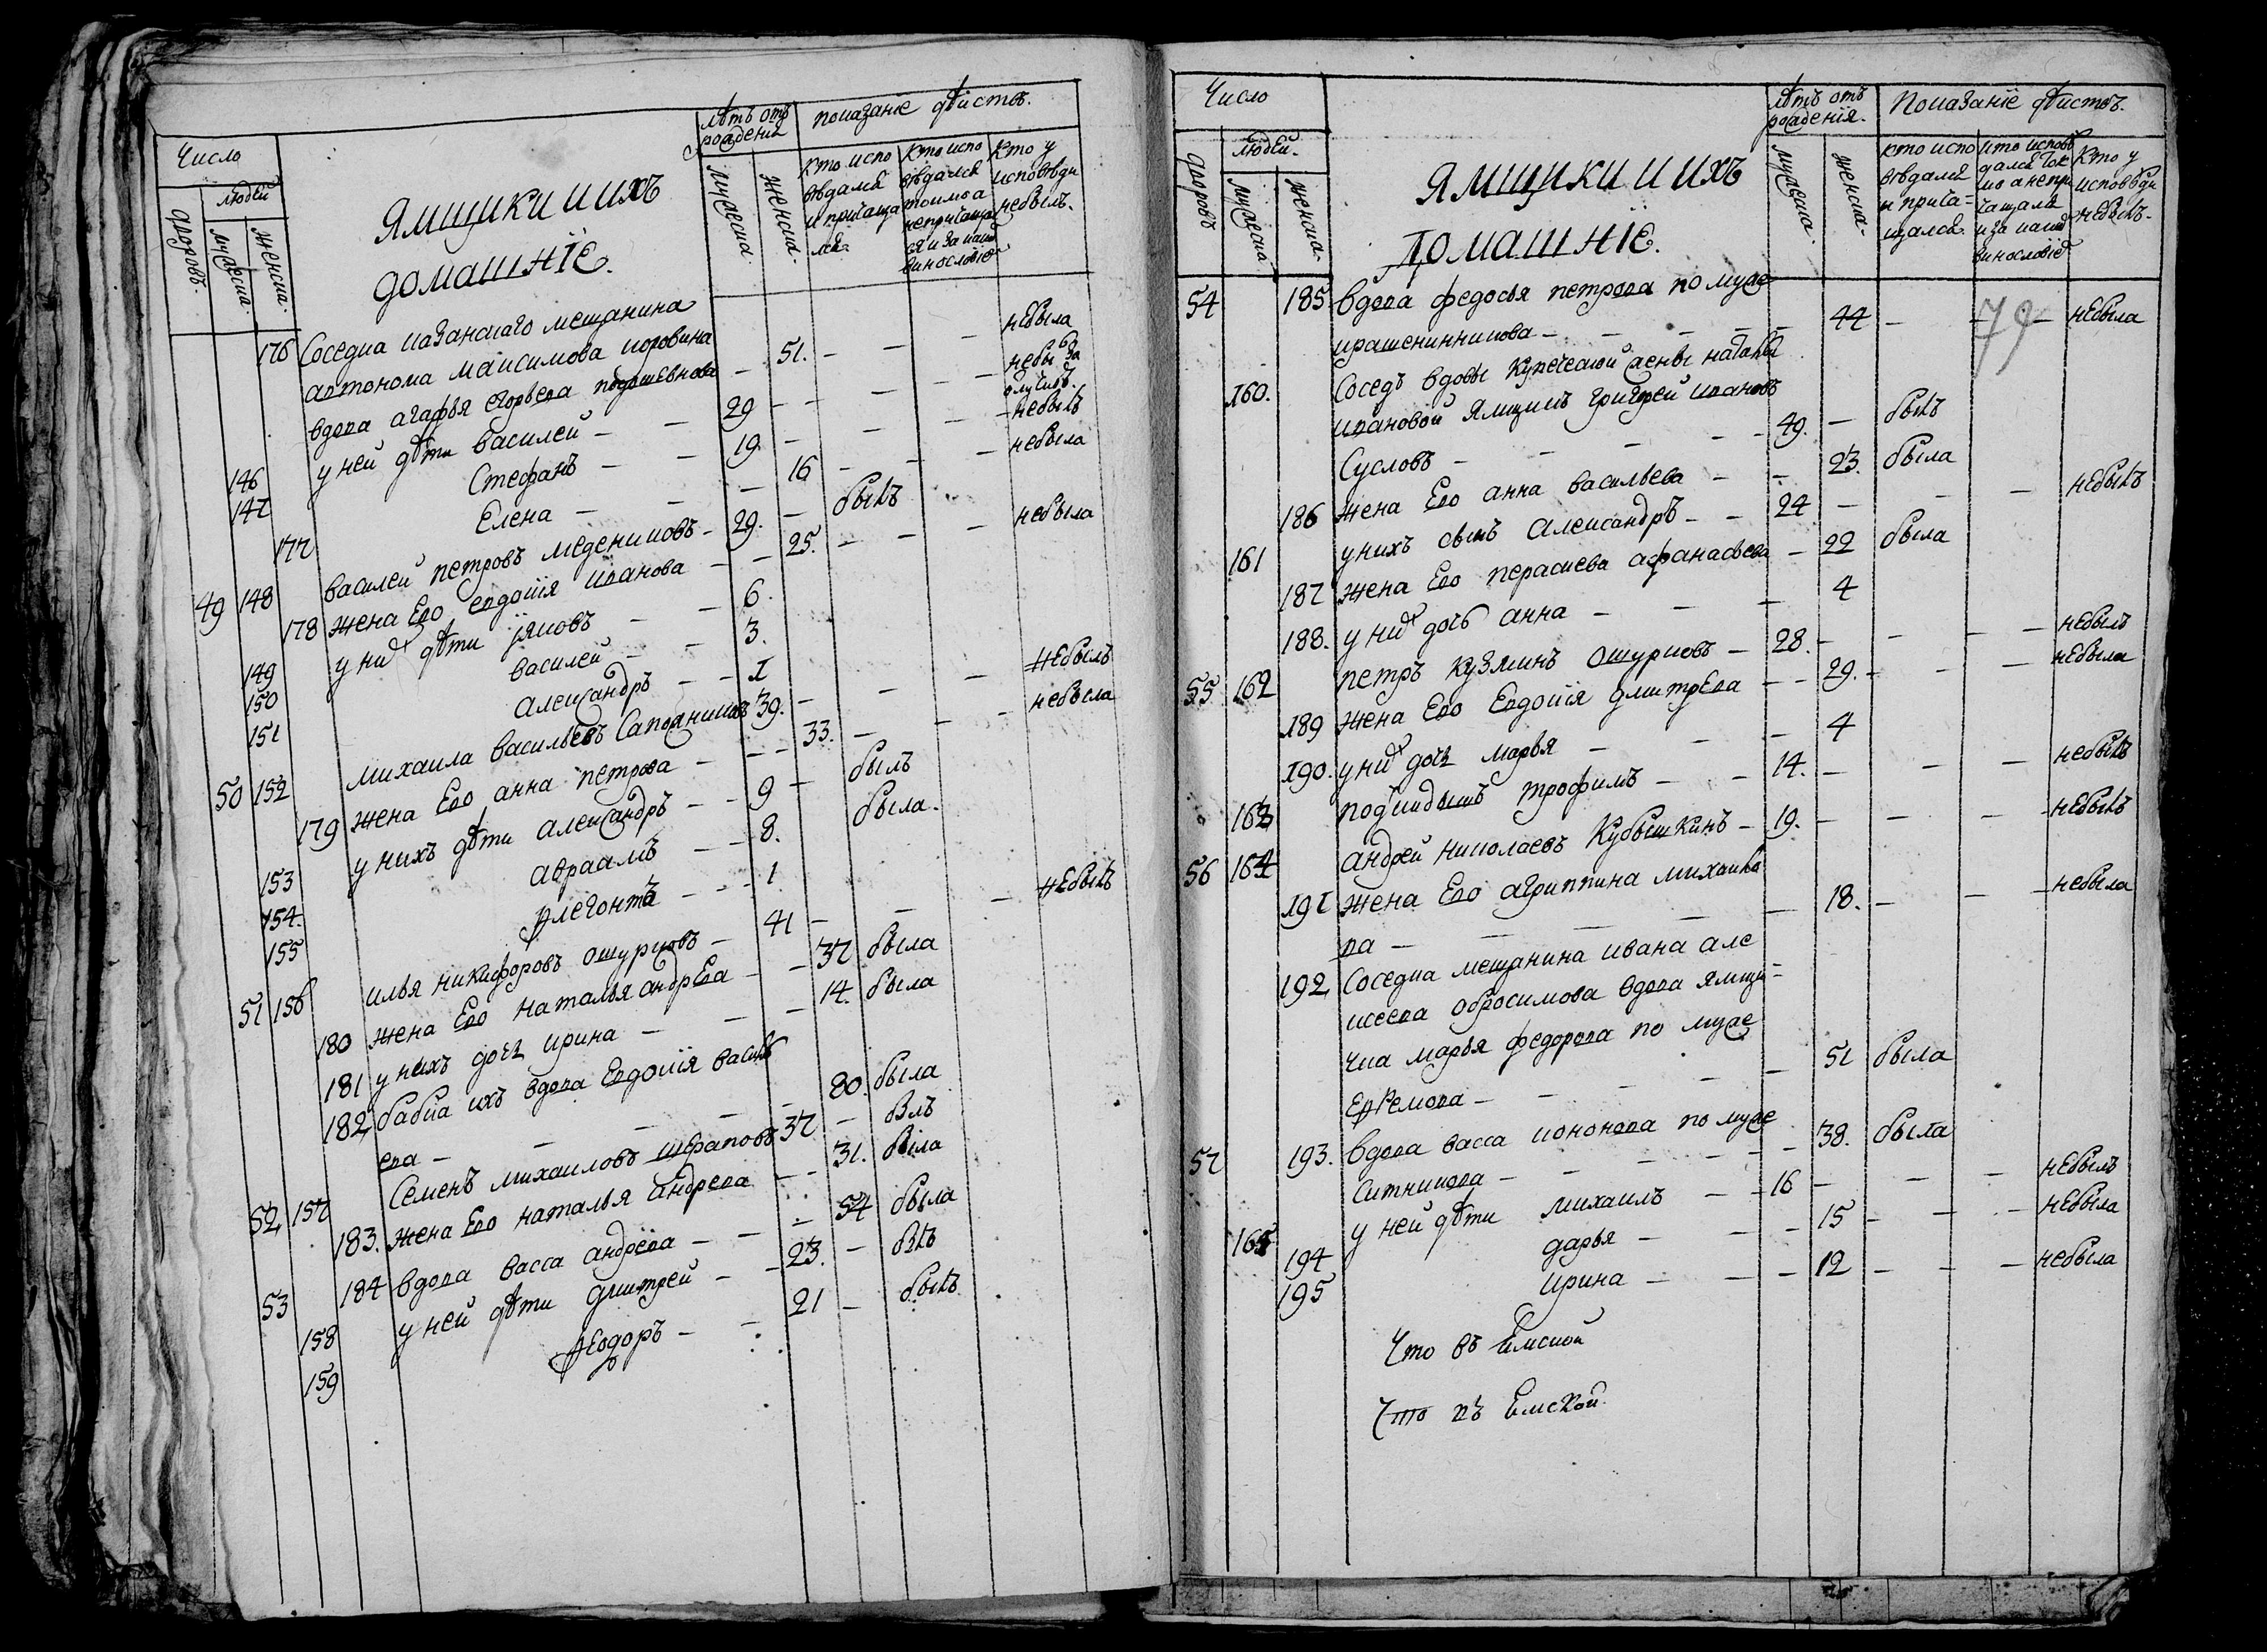 Число
Людей
Дворовъ.
мужеска.
женска.
ЯМЩИКИ И ИХЪ
ДОМАШНІЕ.
лѣтъ отъ
рожденія
мужеска.
женска.
показаніе дѣйствъ.
кто испо
вѣдался
и прича
кто испо
вѣдался
токмо а
непричаща
ся и за каки
винословіе
кто у
исповѣди
небылъ.
176 Соседка казанскаго мещанина
автонома максимова коровина
вдова агафья егорьева подошевнова — 51. — — — небыла
146 у ней дѣти василей — — 29 — — — небы за
отлучкъ.
147 Стефанъ — — 19. — — — небылъ
177 Елена — — — 16 — — — небыла
49 148 василей петровъ меденцовъ — 29. — былъ
178 жена Ево евдокія иванова — — 25. — — — небыла
149 у них дѣти іяковъ — — 6.
150 василей — — 3.
151 александръ — — 1
50 152 михаила васильевъ Сапожников 39. — — — небылъ
179 жена Ево анна петрова — — 33. — — — небыла
153 у нихъ дѣти александръ — — 9 — былъ
154. авраамъ — — 8. была.
155 флегонтъ — — 1
51 156 илья никифоровъ ошурковъ — 41 — — — небылъ
180 жена Ево наталья андрева — — 37 была
181 у нихъ дочь ирина — — — 14. была
182 бабка ихъ вдова Евдокія васил
ева — — — — 80. была
52 157 Семенъ михаиловъ шараповъ 37 — былъ
183. жена Ево наталья андрева — — 31. была
53 184 вдова васса андрева — — — 54 была
158 у ней дѣти дмитрей — — 23. — былъ
159 Феодоръ — — 21 — былъ
Число
Людей.
Дворовъ
мужеска.
женска.
ЯМЩИКИ И ИХЪ
ДОМАШНІЕ.
лѣтъ отъ
рожденія.
мужеска.
женска.
Показаніе дѣйствъ.
кто испо
вѣдался
и прича=
щался.
кто исповѣ
дался ток
мо а непри
чащался
и за каки
винословіе
кто у
исповѣди
небылъ.
79
54 185 вдова федосья петрова по муже
крашенинникова — — — — 44 — — — небыла
160. Соседъ вдовы купеческой жены натальи
ивановой ямщикъ григорей ивановъ
Сусловъ — — — — 49. — былъ
186 жена Ево анна васильева — — 23. была
161 у нихъ сынъ александръ — — 24 — — — небылъ
187 жена Ево параскева афанасьева — 22 была
188. у них дочь анна — — — 4
55 162 петръ кузминъ ошурковъ — 28. — — — небылъ
189 жена Ево Евдокія дмитрева — — 29. — — — небыла
190. у них дочь марья — — — 4
163 подкидышъ трофимъ — — 14. — — — небылъ
56 164 андрей николаевъ Кубышкинъ — 19. — — — небылъ
191 жена Ево агриппина михаило
ва — — — — 18. — — — небыла
192 Соседка мещанина ивана але
ксеева обросимова вдова ямщи=
чка марья федорова по муже
Ефремова — — — — 51 была
57 193. вдова васса кононова по муже
Ситникова — — — — 38. была
165 у ней дѣти михаилъ — — 16 — — — небылъ
194 дарья — — — 15 — — — небыла
195 ирина — — — 12 — — — небыла
Что въ Емской
Что въ Емской.